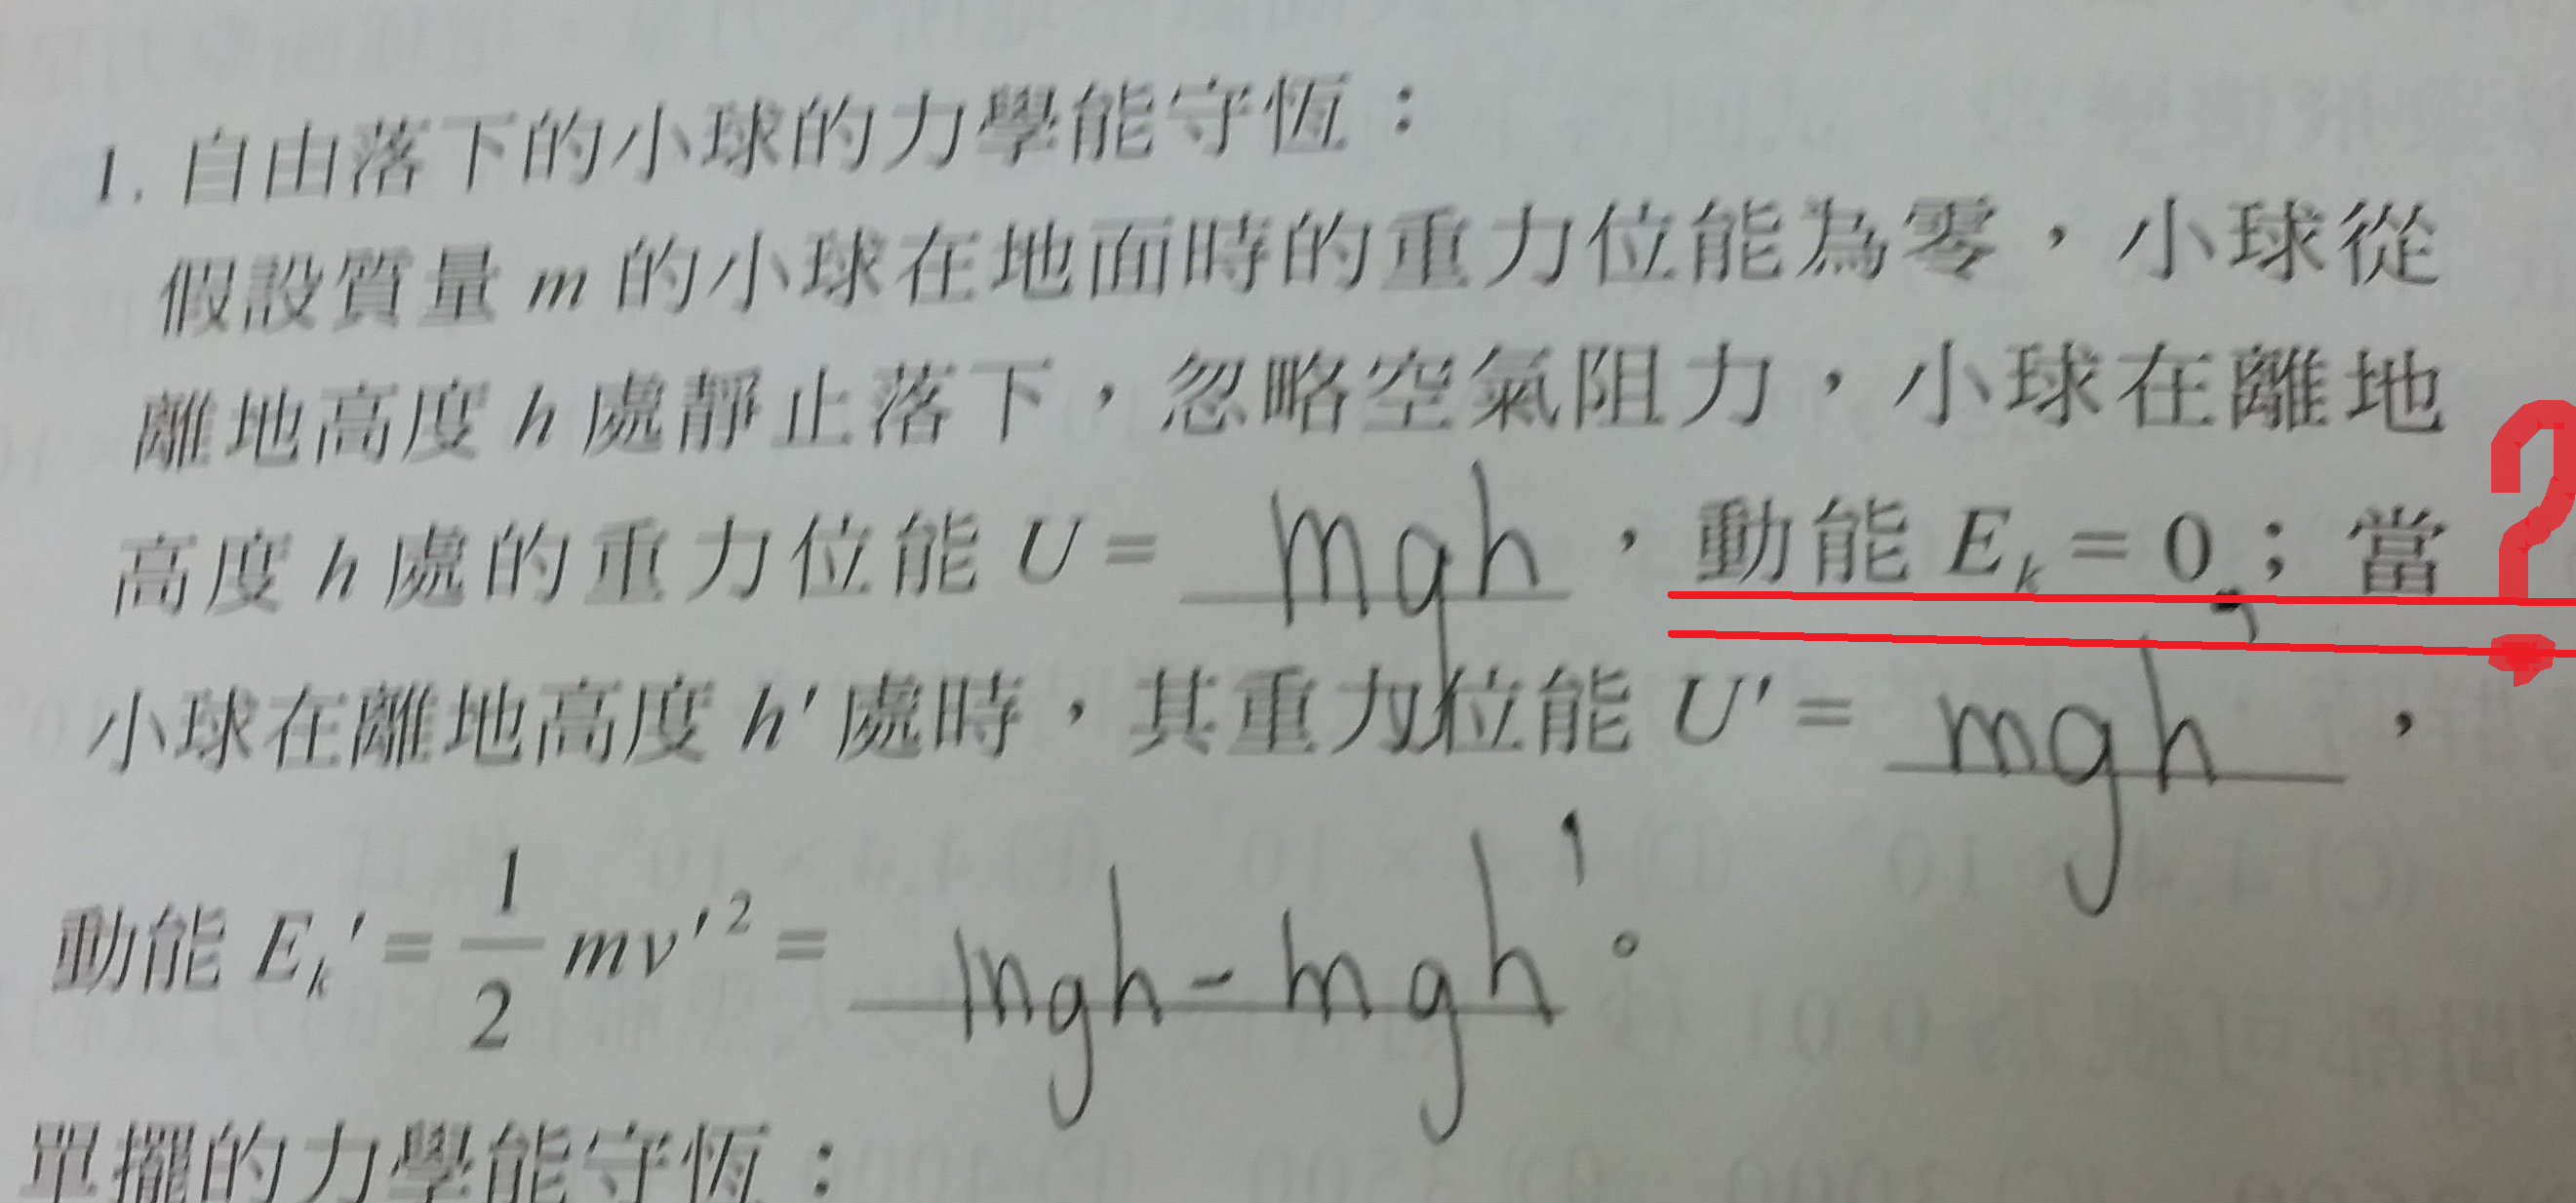 1. 自由落下的小球的力學能守恆：
假設質量 m 的小球在地面時的重力位能為零，小球從
離地高度 h 處靜止落下，忽略空氣阻力，小球在離地
高度 h 處的重力位能 U = mgh，動能 Eₖ = 0；當 ?
小球在離地高度 h' 處時，其重力位能 U' = mgh'，
動能 Eₖ' = 1/2 mv'² = mgh - mgh'。
單擺的力學能守恆：